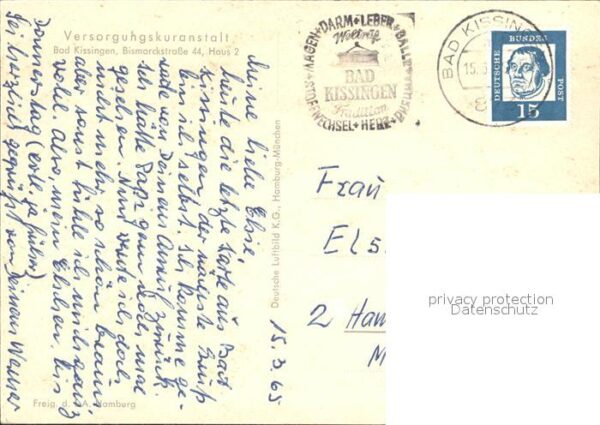 Versorgungskuranstalt
Bad Kissingen, Bismarckstraße 44, Haus 2
MAGEN • DARM • LEBER • GALLE
Weltruf
BAD
KISSINGEN
Tradition
STOFFWECHSEL • HERZ
BAD KISSINGEN
15.3
8
DEUTSCHE BUNDESPOST
15
Meine liebe Elsie,
heute die letzte Karte aus Bad
Kissingen, der nächste Gruß
bin ich selbst. Ich komme ge-
rade von Deinem zurück.
hätte Papi gern noch mal
gesehen. Nun werde ich doch
nicht mehr so schön braun
aber sonst fühle ich mich ganz
wohl. Also, mein Elslein, bis
Donnerstag (evtl. ja früher)
Sei herzlich gegrüßt von Deinem Werner
15.3.65
Deutsche Luftbild K.G., Hamburg-München
Frau
Els
2 Ham
Freig. d. LA. Hamburg
privacy protection
Datenschutz